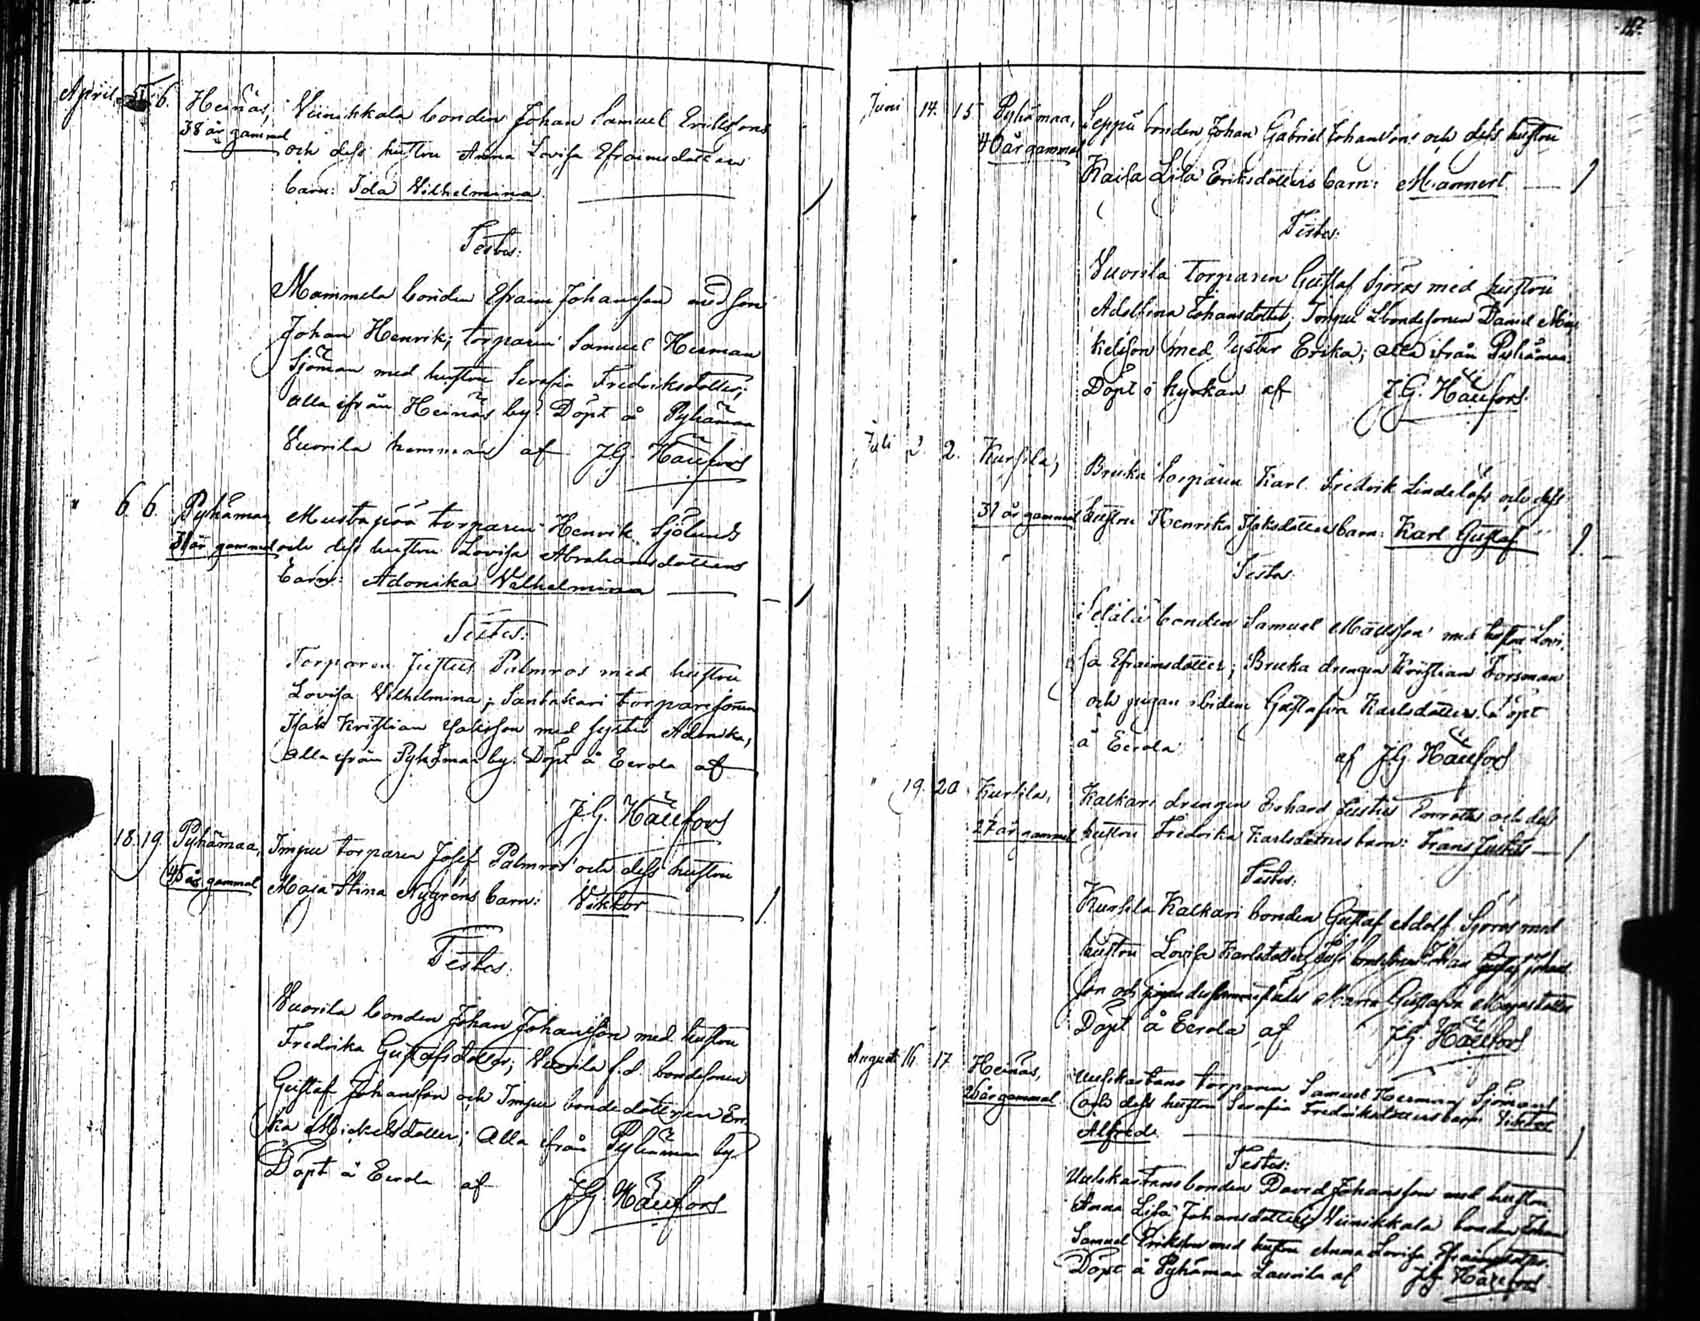 April 5. 6. Heinäs, Viinikkala bonden Johan Samuel Erikssons
38 år gammal och dess hustru Anna Lovisa Efraimsdotters
barn: Ida Wilhelmina.
Testes:
Mammela bonden Efraim Johansson med son
Johan Henrik; torparen Samuel Herman
Sjöman med hustru Serafia Fredriksdotter;
alla ifrån Heinäs by. Döpt å Pyhämaa
Vuorila hemman af J.G. Haufors
" 6. 6. Pyhämaa, Mustapää torparen Henrik Sjölunds
31 år gammal och dess hustru Lovisa Abrahamsdotters
barn: Adonika Wilhelmina
Testes:
Torparen Justus Palmros med hustru
Lovisa Wilhelmina; Santakari torparesonen
Isak Kristian Isaksson med syster Adonika,
Alla ifrån Pyhämaa by. Döpt å Eerola af
J.G. Haufors
18. 19. Pyhämaa, Impu torparen Josef Palmros och dess hustru
45 år gammal Maja Stina Nygrens barn: Viktor
Testes:
Vuorila bonden Johan Johansson med hustru
Fredrika Gustafsdotter; Vuorila f.d. bondesonen
Gustaf Johansson och Impu bondedottren Eri-
ka Mickelsdotter; Alla ifrån Pyhämaa by
Döpt å Eerola af J.G. Haufors
17.
Juni 14. 15. Pyhämaa, Seppä bonden Johan Gabriel Johanssons och dess hustru
40 år gammal Kaisa Lisa Eriksdotters barn: Mannert
Testes:
Vuorila torparen Gustaf Sjöros med hustru
Adolfina Johansdotter; Impu bondesonen Daniel Mic-
kelsson med syster Erika; alla ifrån Pyhämaa.
Döpt i kyrkan af J.G. Haufors.
Juli 2. 2. Kursila, Bruka torparen Karl Fredrik Lindelöfs och dess
31 år gammal hustru Henrika Isaksdotters barn: Karl Gustaf
Testes:
Selälä bonden Samuel Mattsson med hustru Lovi-
sa Efraimsdotter; Bruka drengen Kristian Forsman
och pigan ibidem Gustafva Karlsdotter. Döpt
å Eerola af J.G. Haufors
" 19. 20. Kursila, Kalkari drengen Erhard Justus och dess
27 år gammal hustru Fredrika Karlsdotters barn: Frans Justus
Testes:
Kursila Kalkari bonden Gustaf Adolf Sjöros med
hustru Lovisa Karlsdotter; Johan Gustaf Johans-
son och pigan Maria Gustafva
Döpt å Eerola af J.G. Haufors
Augusti 16. 17. Heinäs, Uulskartano torparen Samuel Herman Sjömans
26 år gammal och dess hustru Serafia Fredriksdotters barn: Viktor
Alfred.
Testes:
Uulskartano bonden David Johansson med hustru
Anna Lisa Johansdotter; Viinikkala bonden Johan
Samuel Eriksson med hustru Anna Lovisa Efraimsdotter.
Döpt å Pyhämaa Laurila af J.G. Haufors